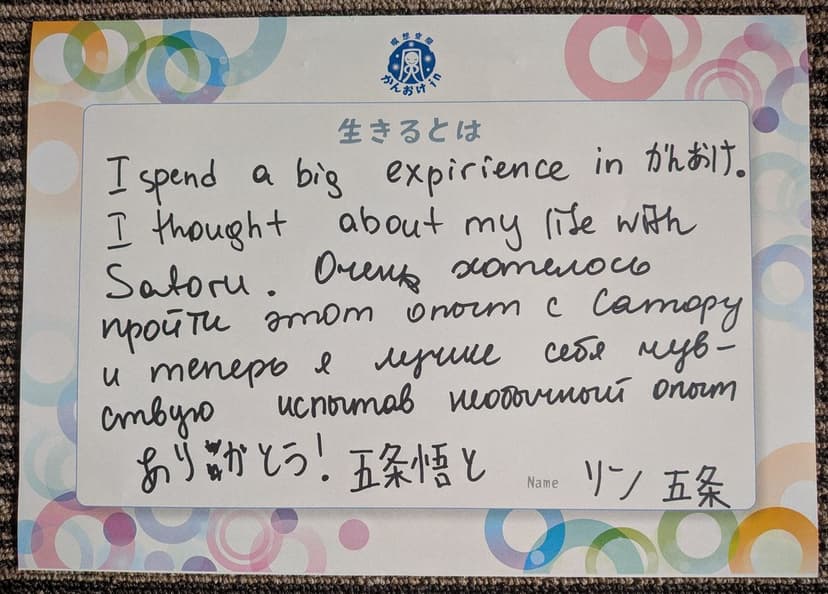 瞑想空間
かんおけin
生きるとは
I spend a big expirience in かんおけ.
I thought about my life with
Satoru. Очень хотелось
пройти этот опыт с Сатору
и теперь я лучше себя чув-
ствую испытав необычный опыт
ありがとう! 五条悟と
Name リン 五条